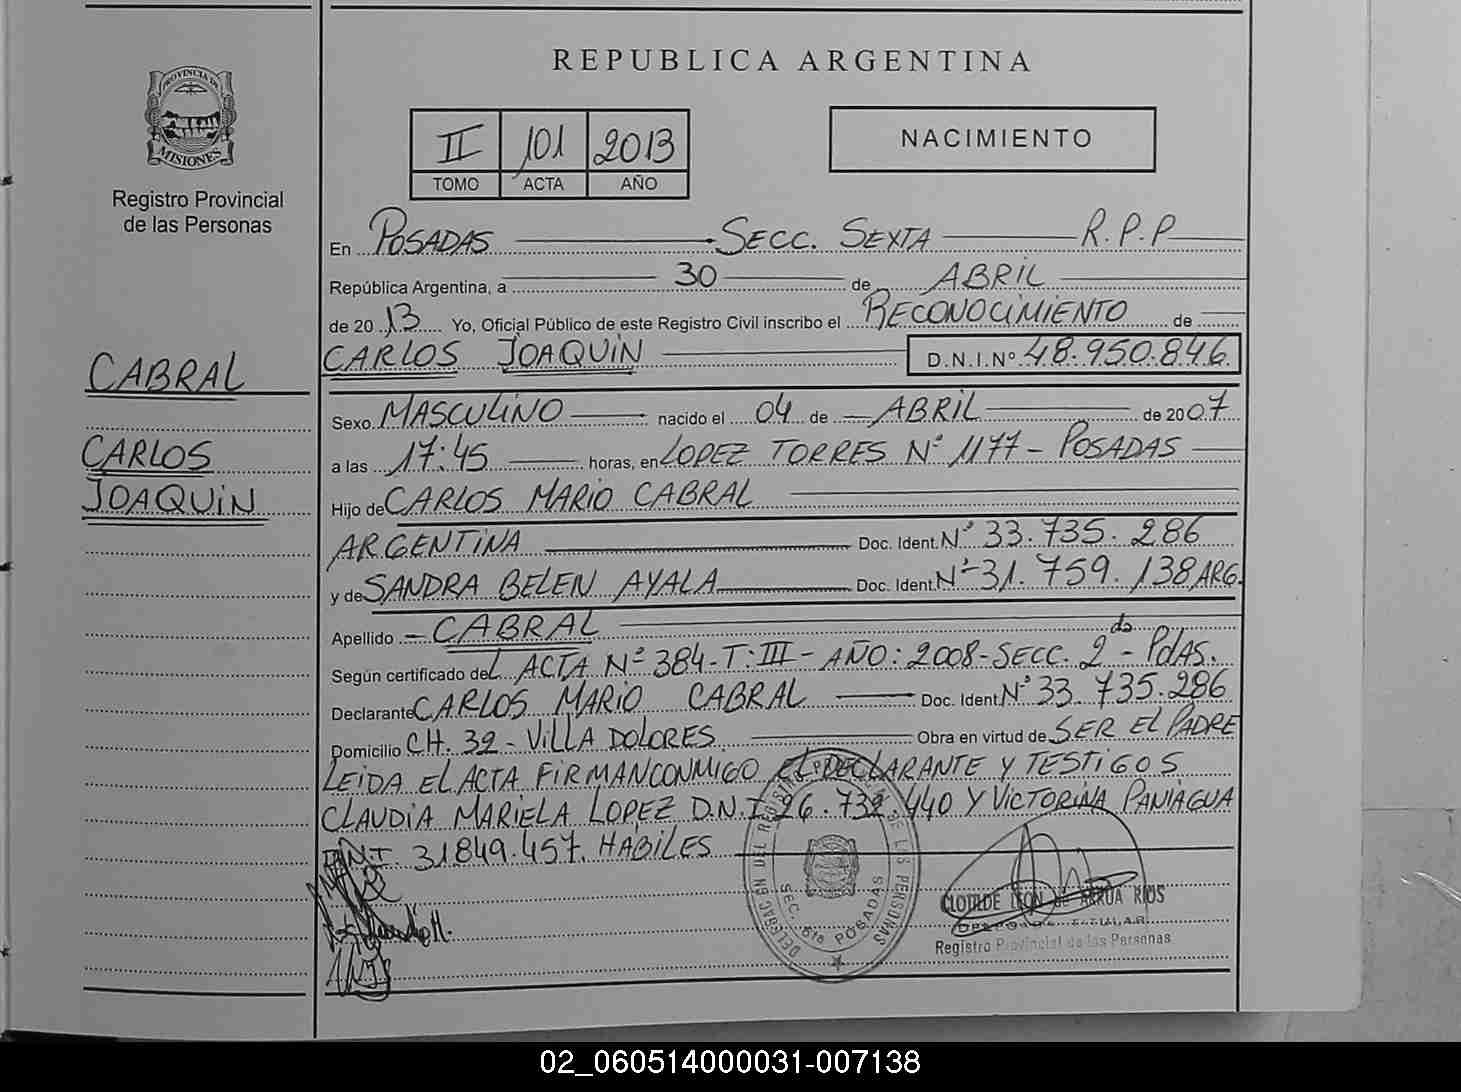 REPUBLICA ARGENTINA
PROVINCIA DE
MISIONES
Registro Provincial
de las Personas
II 101 2013
TOMO ACTA AÑO
NACIMIENTO
En POSADAS SECC. SEXTA R.P.P
República Argentina, a 30 de ABRIL
de 20 13 Yo, Oficial Público de este Registro Civil inscribo el RECONOCIMIENTO de
CARLOS JOAQUIN D.N.I.Nº 48.950.846
CABRAL
CARLOS
JOAQUIN
Sexo MASCULINO nacido el 04 de ABRIL de 2007
a las 17:45 horas, en LOPEZ TORRES Nº 1177 - POSADAS
Hijo de CARLOS MARIO CABRAL
ARGENTINA Doc. Ident. Nº 33.735.286
y de SANDRA BELEN AYALA Doc. Ident. Nº 31.759.138 ARG.
Apellido CABRAL
Según certificado del ACTA Nº 384-T:III-AÑO:2008-SECC. 2da - Pdas.
Declarante CARLOS MARIO CABRAL Doc. Ident. Nº 33.735.286
Domicilio CH. 32 - VILLA DOLORES Obra en virtud de SER EL PADRE
LEIDA EL ACTA FIRMANCONMIGO EL DECLARANTE Y TESTIGOS
CLAUDIA MARIELA LOPEZ D.N.I 26.732.440 Y VICTORINA PANIAGUA
D.N.I. 31849.457. HABILES
DELEGAC Nº DEL REGISTRO PROVINCIAL DE LAS PERSONAS
SEC. 6ta POSADAS
CLOTILDE LEON de ARRUA RIOS
Registro Provincial de las Personas
02_060514000031-007138